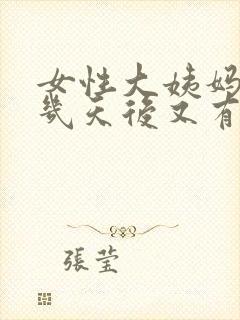 女性大姨妈
幾天後又有
張莹